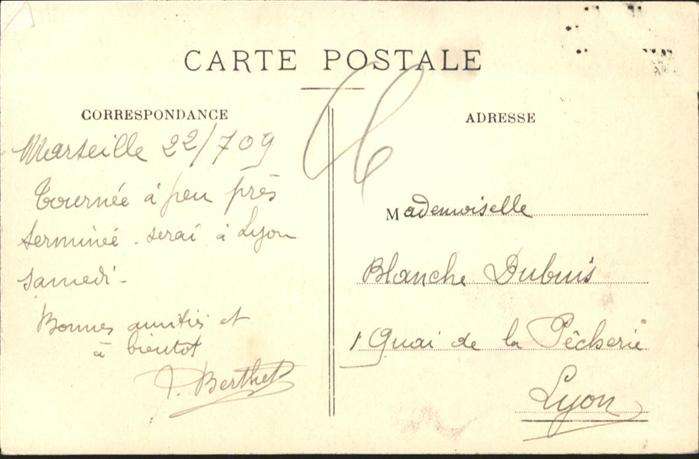 CARTE POSTALE
CORRESPONDANCE
Marseille 22/7 09
Tournée à peu près
terminée. serai à Lyon
samedi-
Bonnes amitiés et
à bientot
Berthet
ADRESSE
Mademoiselle
Blanche Dubuis
1 Quai de la Pêcherie
Lyon